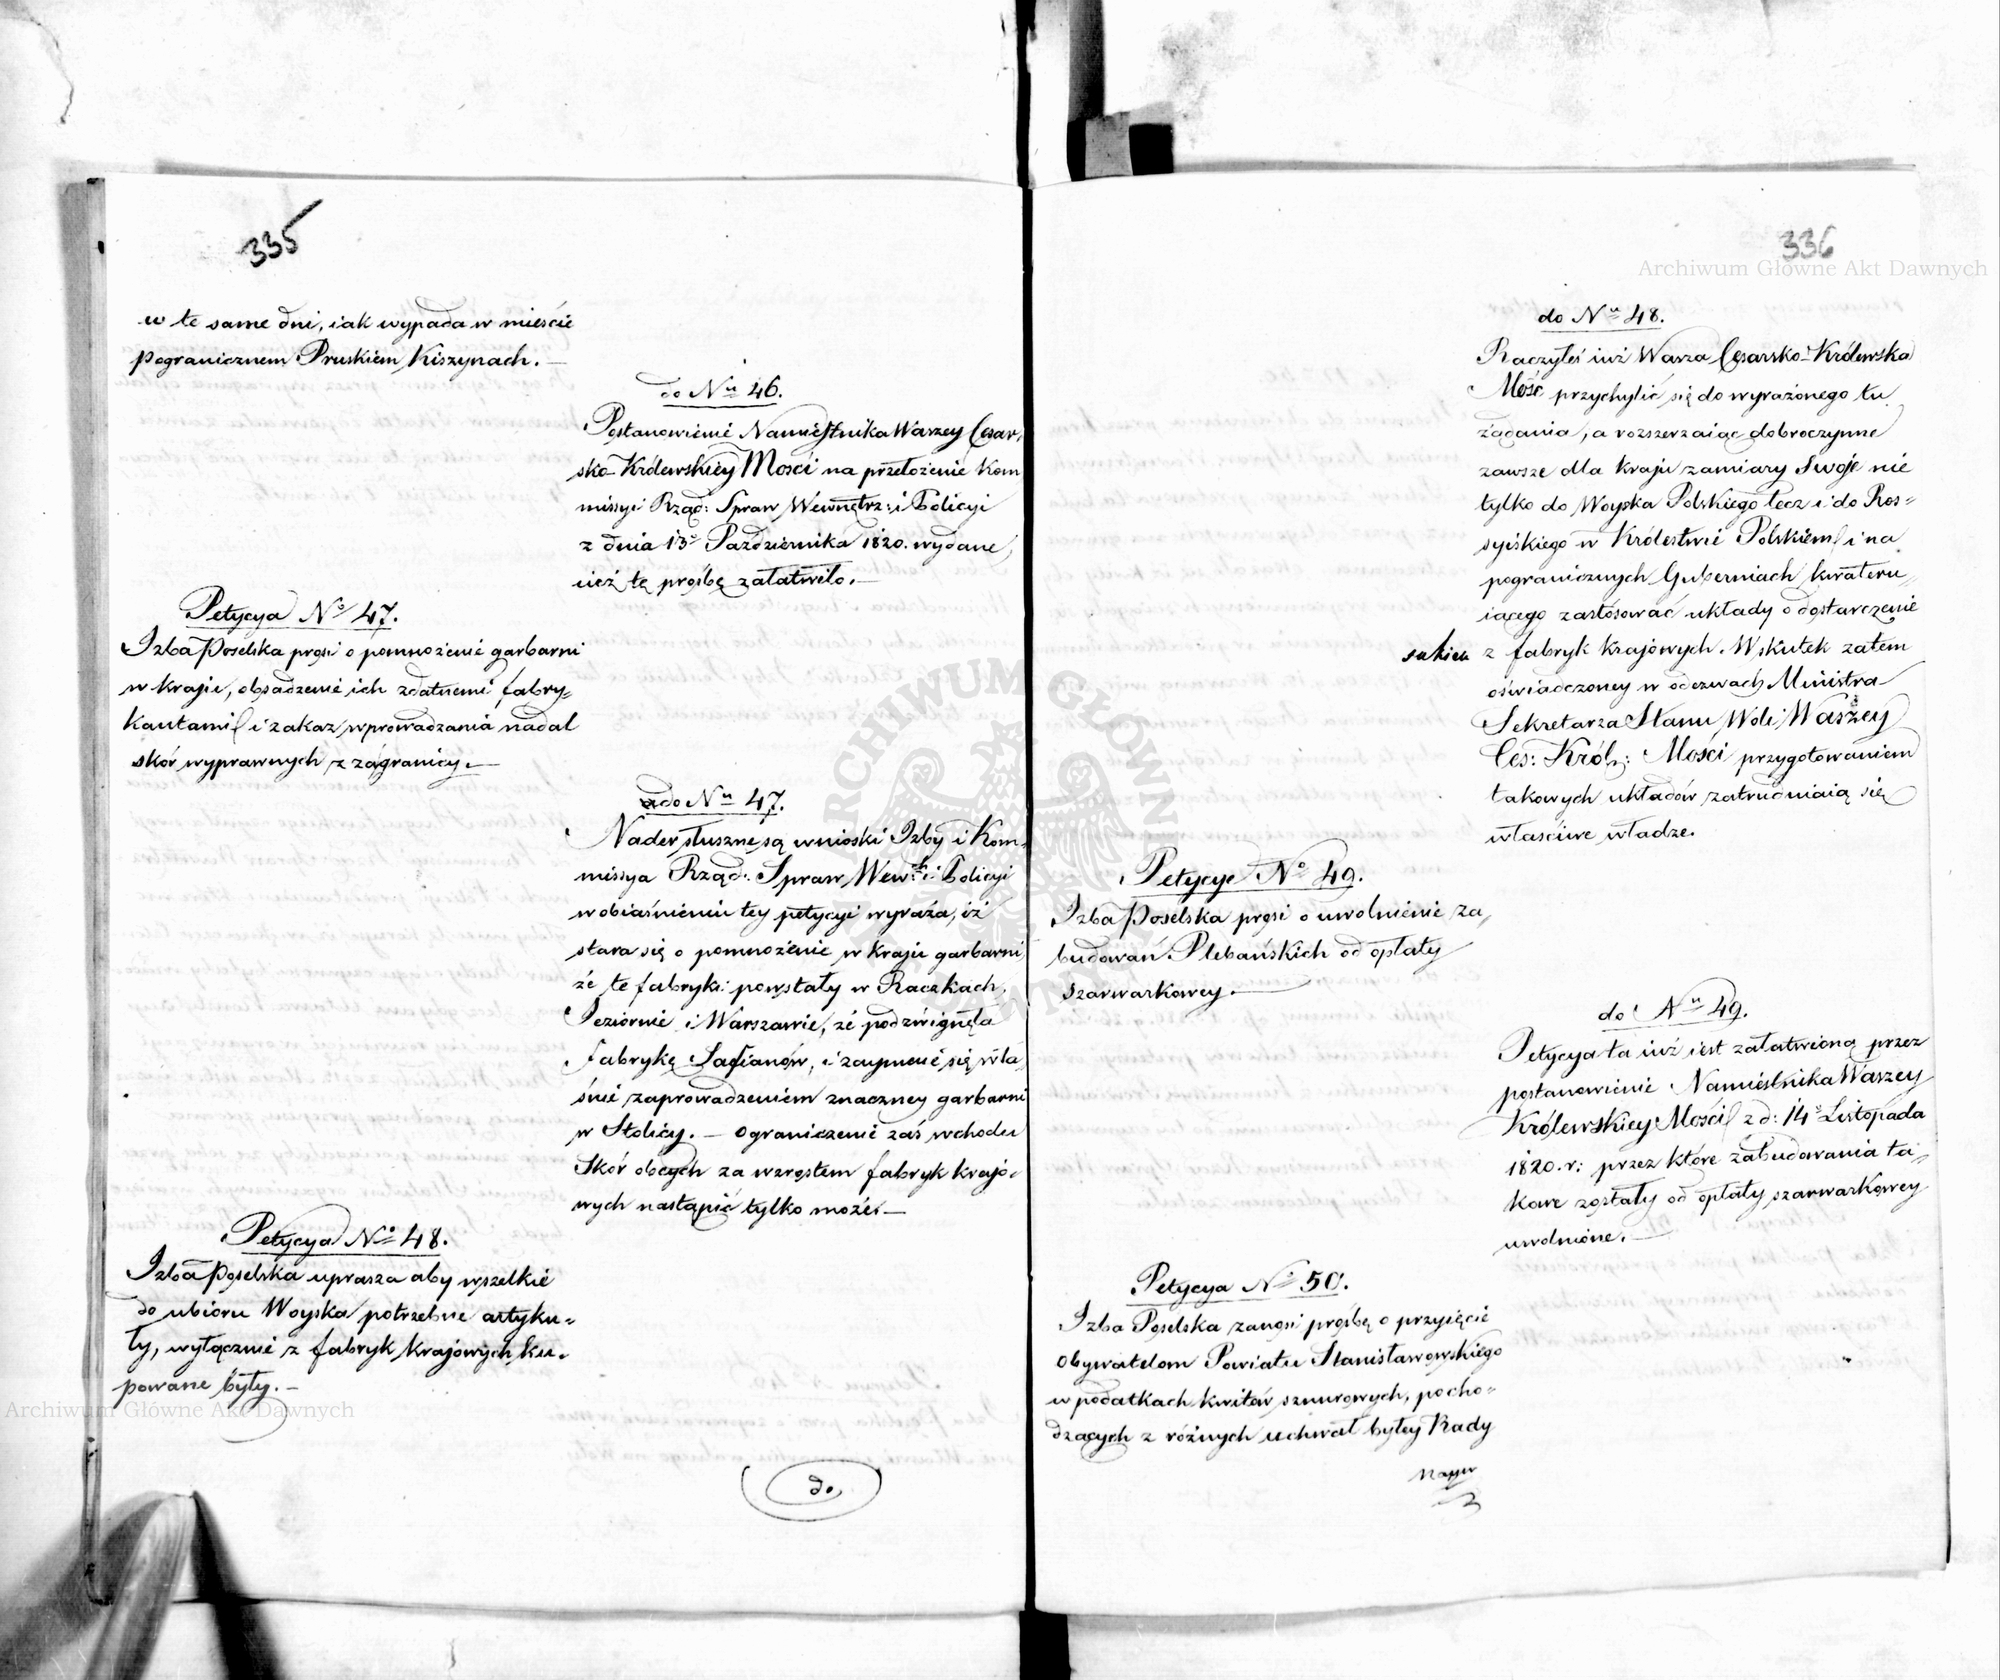 335
w te same dni, iak wypada w mieście
pogranicznem Pruskiem Kiszynach. —
do Nu 46.
Postanowienie Namiestnika Waszey Cesar,
sko-Królewskiey Mości na przełożenie Kom
missyi Rząd: Spraw Wewnętrz: i Policyi
z dnia 13º Października 1820. wydane,
iież tę prośbę załatwiło. —
Petycya No 47.
Izba Poselska prosi o pomnożenie garbarni
w kraju, obsadzenie ich zdatnemi fabry-
kantami i zakaz wprowadzania nadal
skór wyprawnych z zagranicy. —
do Nu 47.
Nader słuszne są wnioski Izby i Kom-
missya Rząd: Spraw Wew: i Policyi
w obiaśnieniu tey petycyi wyraża, iż
stara się o pomnożenie w kraju garbarni
że te fabryki powstały w Raczkach,
Jeziornie i Warszawie, że podźwignęła
fabrykę Safianów, i zaymuie się wła
śnie zaprowadzeniem znaczney garbarni
w Stolicy. — Ograniczenie zaś wchodu
Skór obcych za wzrostem fabryk krajo-
wych nastąpić tylko może. —
Petycya No 48.
Izba Poselska uprasza aby wszelkie
do ubioru Woyska potrzebne artyku-
ły, wyłącznie z fabryk krajowych ku-
powane były. —
do
336
do Nu 48.
Raczyłeś iuż Wasza Cesarsko-Królewska
Mość przychylić się do wyrażonego tu
żądania, a rozszerzaiąc dobroczynne
zawsze dla kraju zamiary Swoje nie
tylko do Woyska Polskiego lecz i do Ros-
syiskiego w Królestwie Polskiem i na
pogranicznych Guberniach kwateru-
iącego zastosować układy o dostarczenie
sukien z fabryk krajowych. Wskutek zatem
oświadczoney w odezwach Ministra
Sekretarza Stanu Woli Waszey
Ces: Król: Mości przygotowaniem
takowych układów zatrudniaią się
właściwe władze.
Petycye No 49.
Izba Poselska prosi o uwolnienie za,
budowań Plebańskich od opłaty
szarwarkowey. —
do Nu 49.
Petycya ta iuż iest załatwioną przez
postanowienie Namiestnika Waszey
Królewskiey Mości z d: 14º Listopada
1820. r: przez które zabudowania ta-
kowe zostały od opłaty szarwarkowey
uwolnione. —
Petycya No 50.
Izba Poselska zanosi prośbę o przyięcie
Obywatelom Powiatu Stanisławowskiego
w podatkach kwitów sznurowych, pocho-
dzących z różnych uchwał byłey Rady
Archiwum Główne Akt Dawnych
Archiwum Główne Akt Dawnych
ARCHIWUM GŁÓWNE